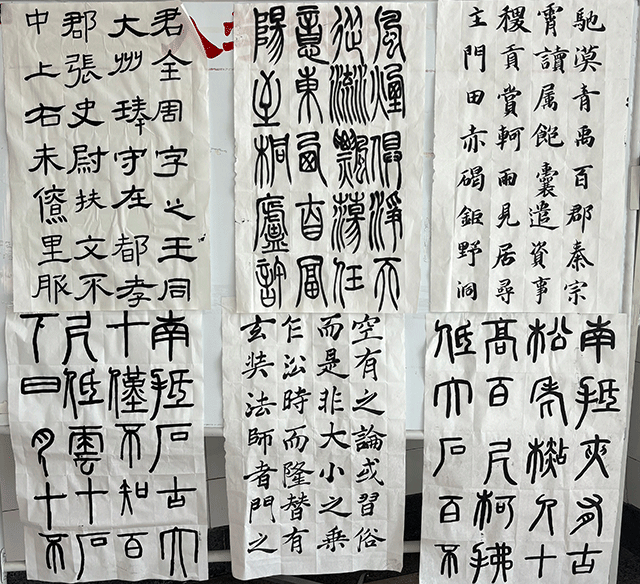 馳漠青禹百郡秦宗
霄讀属飽囊遣資事
稷貢賞軻雨見居尋
主門田赤碣鉅野洞
風煙俱淨天
從流飄蕩任
意東西百冨
陽至桐廬許
君全周字之王同
大州守在都孝
郡張史尉扶文不
中上右未里服
南抵夾有古
松老十
高百尺柯拂
低穴石百不
空有之論或習俗
而是非大小之乗
乍沿時而隆替有
玄奘法師者門之
南抵石古穴
十僅不知百
尺低雲十石
下曰十不